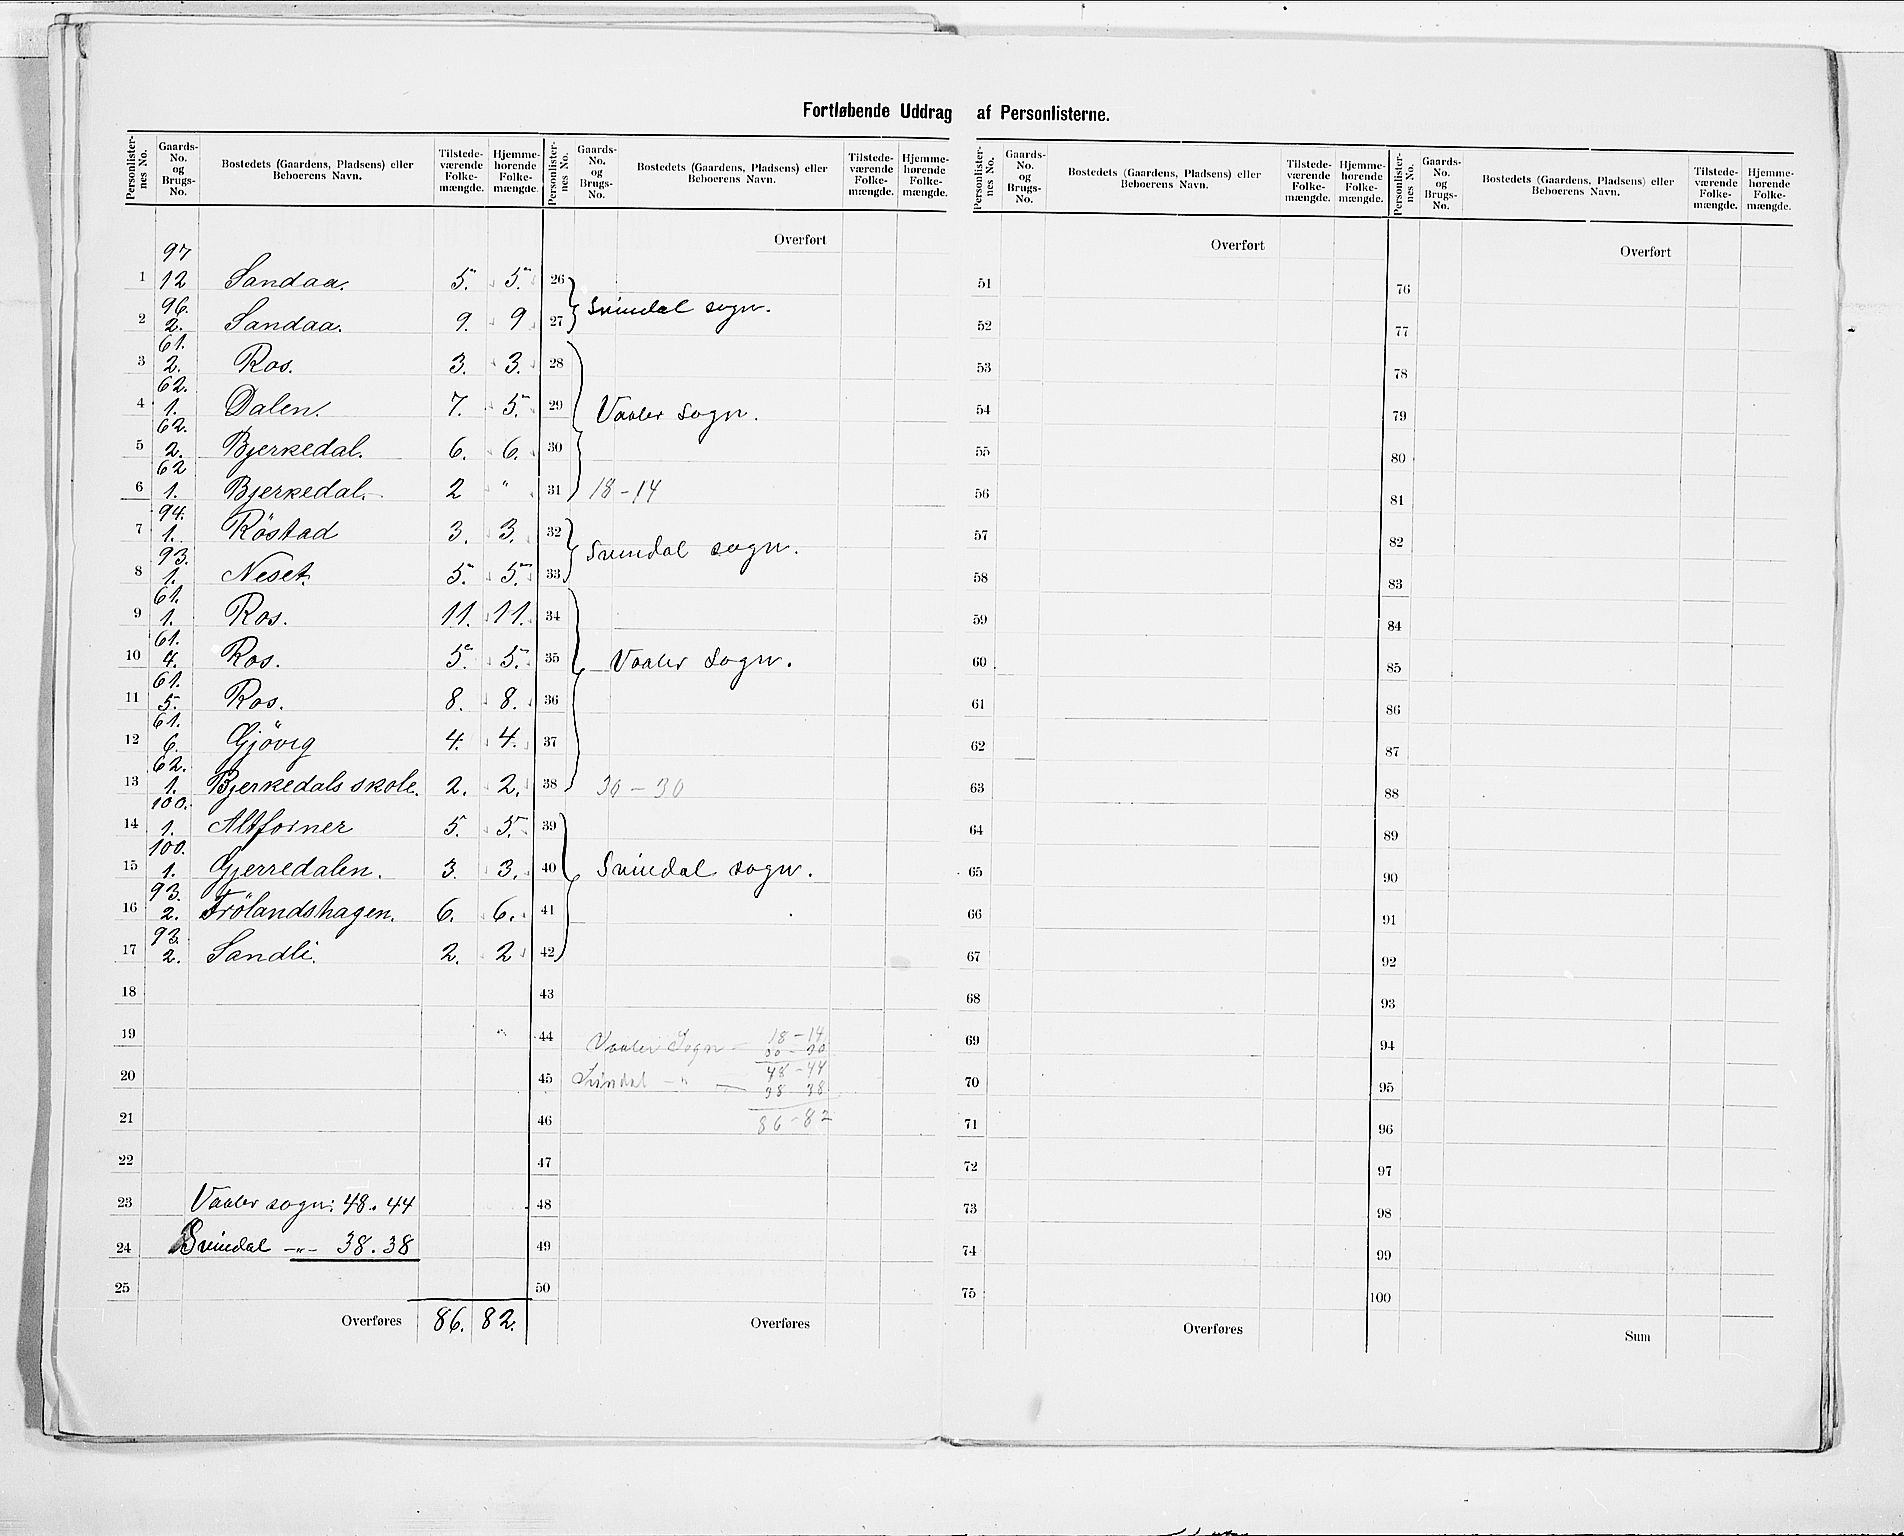 Fortløbende Uddrag af Personlisterne.
Personlister-nes No. Gaards-No. og Brugs-No. Bostedets (Gaardens, Pladsens) eller Beboerens Navn. Tilstede-værende Folke-mængde. Hjemme-hørende Folke-mængde.
Personlister-nes No. Gaards-No. og Brugs-No. Bostedets (Gaardens, Pladsens) eller Beboerens Navn. Tilstede-værende Folke-mængde. Hjemme-hørende Folke-mængde.
Personlister-nes No. Gaards-No. og Brugs-No. Bostedets (Gaardens, Pladsens) eller Beboerens Navn. Tilstede-værende Folke-mængde. Hjemme-hørende Folke-mængde.
Personlister-nes No. Gaards-No. og Brugs-No. Bostedets (Gaardens, Pladsens) eller Beboerens Navn. Tilstede-værende Folke-mængde. Hjemme-hørende Folke-mængde.
97
1 12 Sandaa. 5. 5.
96.
2 2. Sandaa. 9. 9
61.
3 2. Ros. 3. 3.
62.
4 1. Dalen. 7. 5.
62.
5 2. Bjerkedal. 6. 6.
62
6 1. Bjerkedal. 2 "
94.
7 1. Röstad 3. 3.
93.
8 1. Neset. 5. 5.
61.
9 1. Ros. 11. 11.
61.
10 4. Ros. 5. 5.
61.
11 5. Ros. 8. 8.
61.
12 6. Gjövig 4. 4.
62.
13 1. Bjerkedals skole. 2. 2.
100.
14 1. Altforner 5. 5.
100.
15 1. Gjerredalen. 3. 3.
93.
16 2. Frölandshagen. 6. 6.
93.
17 2. Sandli. 2. 2
18
19
20
21
22
23 Vaaler sogn: 48. 44
24 Svindal -"- 38. 38
25
Overføres 86. 82.
Overført
26
27 Svindal sogn.
28
29 Vaaler sogn.
30
31 18-14
32
33 Svindal sogn.
34
35 Vaaler sogn.
36
37
38 30-30
39
40 Svindal sogn.
41
42
43
44 Vaaler Sogn - 18-14
30-30
48-44
45 Svindal -"- 38 38
46 86-82
47
48
49
50
Overføres
Overført
51
52
53
54
55
56
57
58
59
60
61
62
63
64
65
66
67
68
69
70
71
72
73
74
75
Overføres
Overført
76
77
78
79
80
81
82
83
84
85
86
87
88
89
90
91
92
93
94
95
96
97
98
99
100
Sum